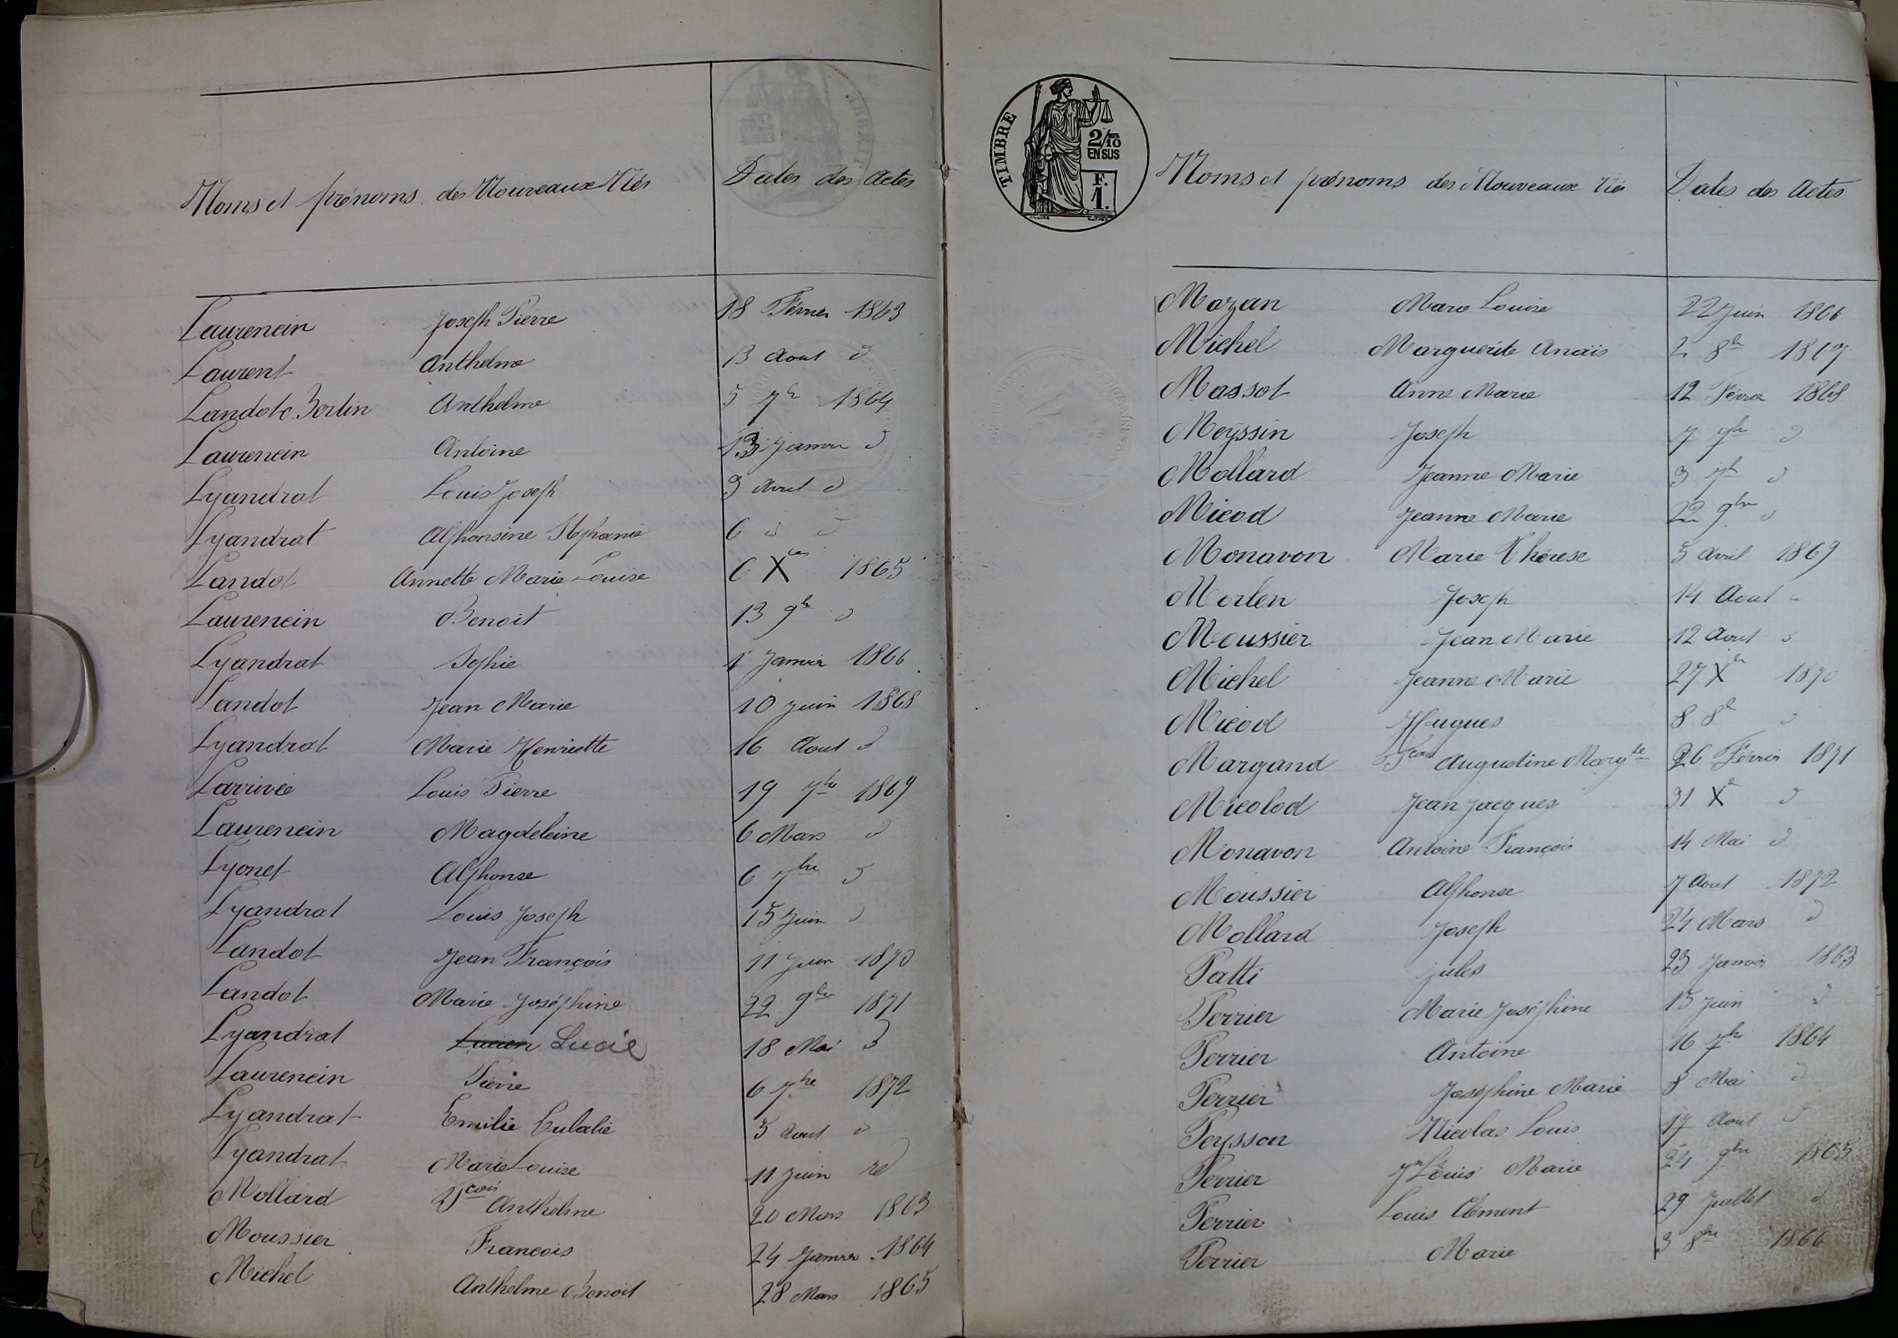 Noms et prénoms des Nouveaux Nés Dates des Actes
Laurencin Joseph Pierre 18 Février 1863
Laurent Anthelme 13 Aout d
Landot Bertin Anthelme 5 7b 1864
Laurencin Antoine 13 Janvier d
Lyandrat Louis Joseph 3 Avril d
Lyandrat Alphonsine Stéphanie 6 d d
Landot Annette Marie Louise 6 Xbre 1865
Laurencin Benoit 13 9b d
Lyandrat Sophie 1 Janvier 1866
Landot Jean Marie 10 Juin 1868
Lyandrat Marie Henriette 16 Aout d
Larrivée Louis Pierre 19 7b 1869
Laurencin Magdeleine 6 Mars d
Lyonet Alphonse 6 7bre d
Lyandrat Louis Joseph 15 Juin d
Landot Jean François 11 Juin 1870
Landot Marie Joséphine 22 9bre 1871
Lyandrat Lucien Lucie 18 Mai d
Laurencin Pierre 6 7bre 1872
Lyandrat Emilie Eulalie 5 Aout d
Lyandrat Marie Louise 11 Juin d
Mollard Fcois Anthelme 20 Mars 1863
Moussier François 24 Janvier 1864
Michel Anthelme Benoit 28 Mars 1865
TIMBRE
2/10
EN SUS
F.
1.
Noms et prénoms des Nouveaux Nés Dates des Actes
Mazan Marie Louise 22 Juin 1866
Michel Marguerite Anaïs 2 8b 1867
Massot Anne Marie 12 Février 1868
Meyssin Joseph 7 7br d
Mollard Jeanne Marie 3 7b d
Micod Jeanne Marie 22 9bre d
Monavon Marie Thérese 5 Avril 1869
Merlen Joseph 14 Aout d
Moussier Jean Marie 12 Aout d
Michel Jeanne Marie 27 Xb 1870
Micod Hugues 8 8b d
Margand Augustine Margte 26 Février 1871
Micolod Jean Jacques 31 X d
Monavon Antoine François 14 Mai d
Moussier Alphonse 7 Aout 1872
Mollard Joseph 24 Mars d
Patti Jules 23 Janvier 1863
Perrier Marie Joséphine 15 Juin d
Perrier Antoine 16 7b 1864
Perrier Joséphine Marie 8 Mai d
Peysson Nicolas Louis 17 Aout d
Perrier Jn Louis Marie 24 9bre 1865
Perrier Louis Clément 29 Juillet d
Perrier Marie 3 8bre 1866